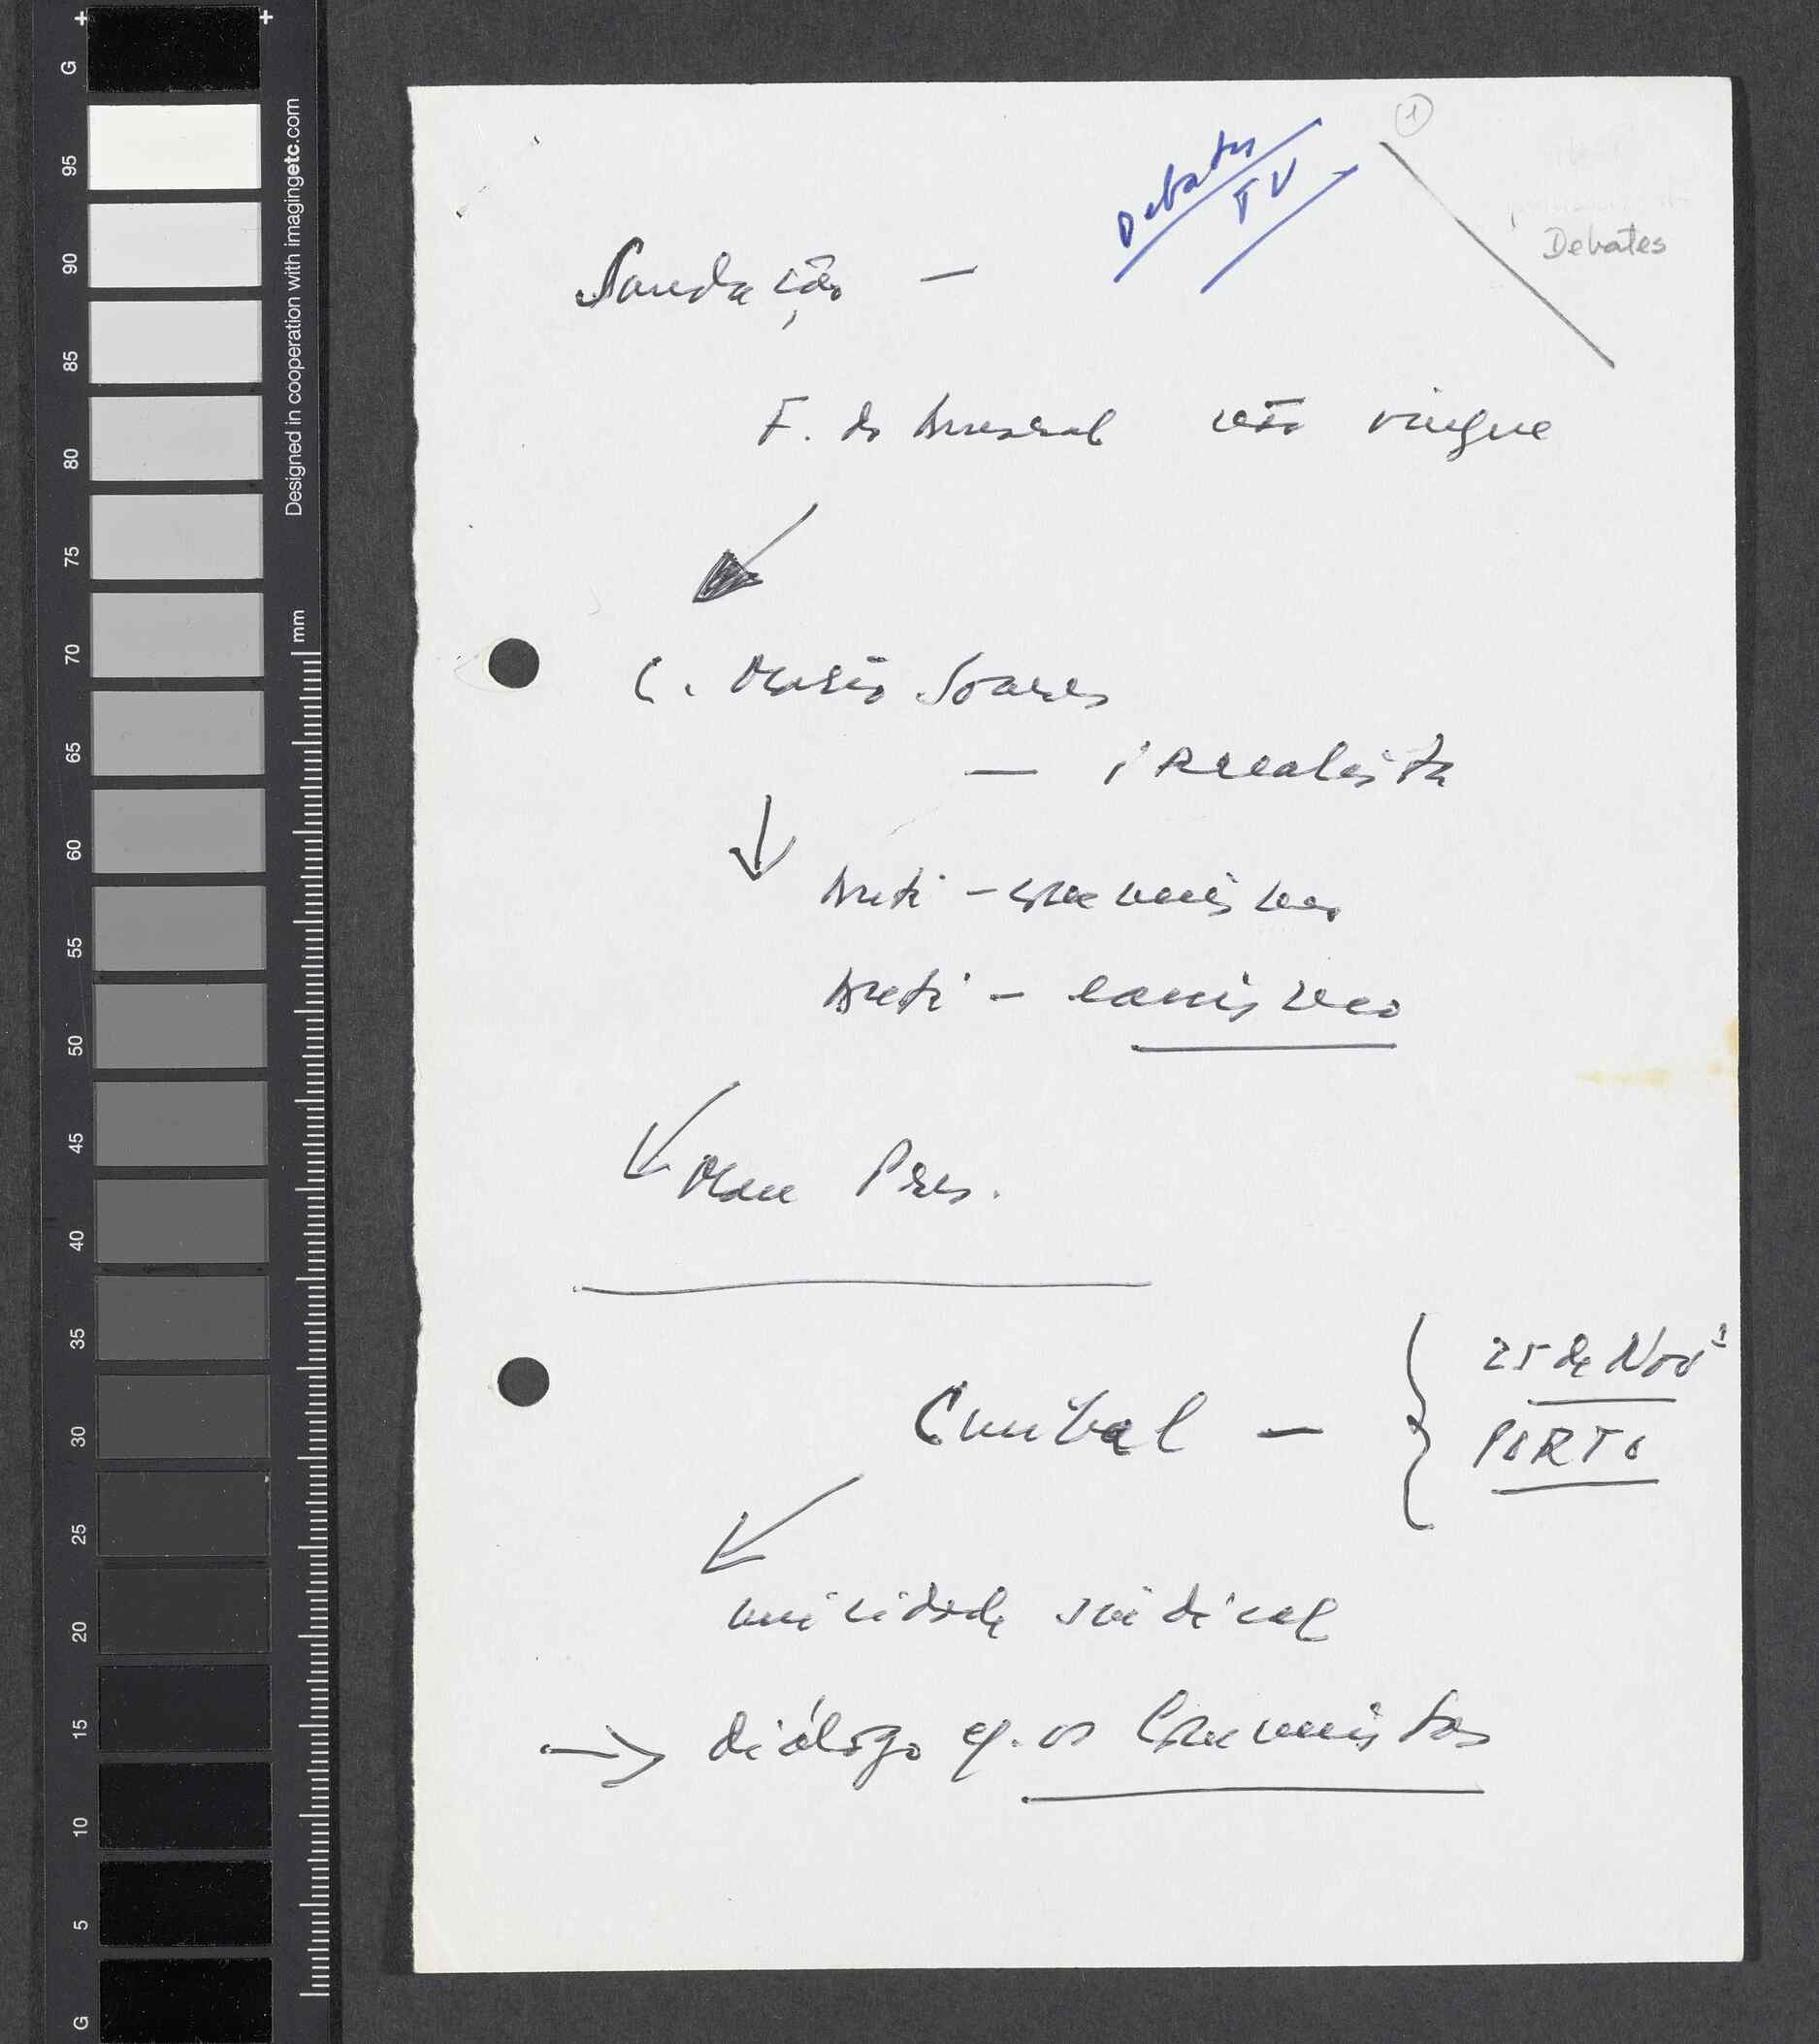 G
95
90
85
80
75
70
65
60
55
50
45
40
35
30
25
20
15
10
5
G
Designed in cooperation with imagingetc.com
mm
1
Debates
TV
Debates
Saudação —
F. do Amaral não vingue
C. Mário Soares
— iRrealista
Anti - comunismo
Anti - eanismo
Mau Pres.
Cunhal —
25 de Novº
PORTO
unicidade sindical
diálogo c/. os Comunistas